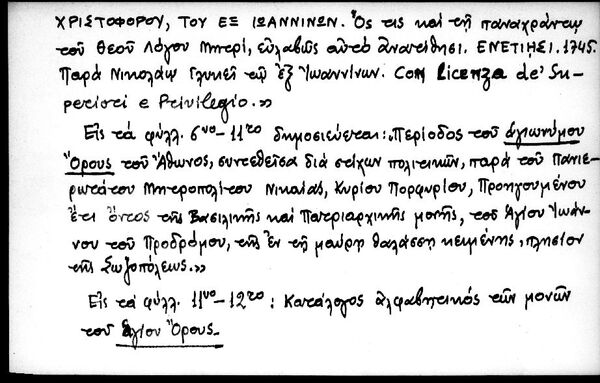 ΧΡΙΣΤΟΦΟΡΟΥ, ΤΟΥ ΕΞ ΙΩΑΝΝΙΝΩΝ. Ὅς τις καὶ τῇ παναχράντῳ
τοῦ Θεοῦ Λόγου Μητρί, εὐλαβῶς αὐτὸ ἀνατίθησι. ΕΝΕΤΙΗΣΙ. 1745.
Παρὰ Νικολάῳ Γλυκεῖ τῷ ἐξ Ἰωαννίνων. Con Licenza de' Su-
periori e Privilegio.»
Εἰς τὰ φύλλ. 6νο-11το δημοσιεύεται: «Περίοδος τοῦ ἁγιωνύμου
Ὄρους τοῦ Ἄθωνος, συντεθεῖσα διὰ στίχων πολιτικῶν, παρὰ τοῦ Πανιε-
ρωτάτου Μητροπολίτου Νικαίας, Κυρίου Πορφυρίου, Προηγουμένου
ἔτι ὄντος τῆς Βασιλικῆς καὶ Πατριαρχικῆς μονῆς, τοῦ Ἁγίου Ἰωάν-
νου τοῦ Προδρόμου, τῆς ἐν τῇ μαύρῃ θαλάσσῃ κειμένης, πλησίον
τῆς Σωζοπόλεως.»
Εἰς τὰ φύλλ. 11νο-12το: Κατάλογος ἀλφαβητικὸς τῶν μονῶν
τοῦ Ἁγίου Ὄρους.-